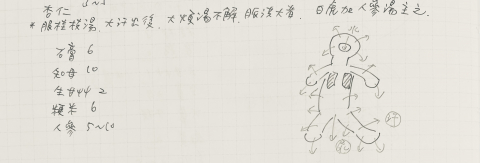 杏仁 5~5
*服桂枝湯，大汗出後，大煩渴不解，脈洪大者，白虎加人參湯主之.
石膏 6
知母 10
生甘艸 2
粳米 6
人參 5~10